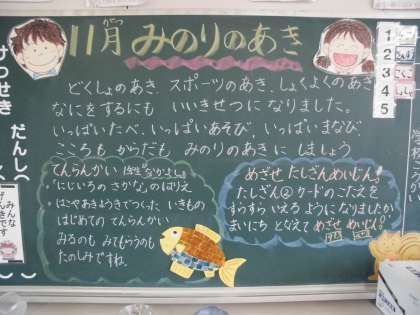 11月 みのりのあき
どくしょのあき、スポーツのあき、しょくよくのあき
なにをするにも いいきせつに なりました。
いっぱいたべ、いっぱいあそび、いっぱいまなび、
こころも からだも みのりのあきに しましょう
てんらんかい
「にじいろの さかな」のはりえ
はこやあきようきでつくった いきもの
はじめての てんらんかい
みるのも みてもらうのも
たのしみですね。
めざせ たしざんめいじん!
たしざん② カードのこたえを
すらすら いえる ようになりましたか
まいにち となえて めざせ めいじん!
けっせき
だんし
みんな
げんきです
1
2
3
4
5